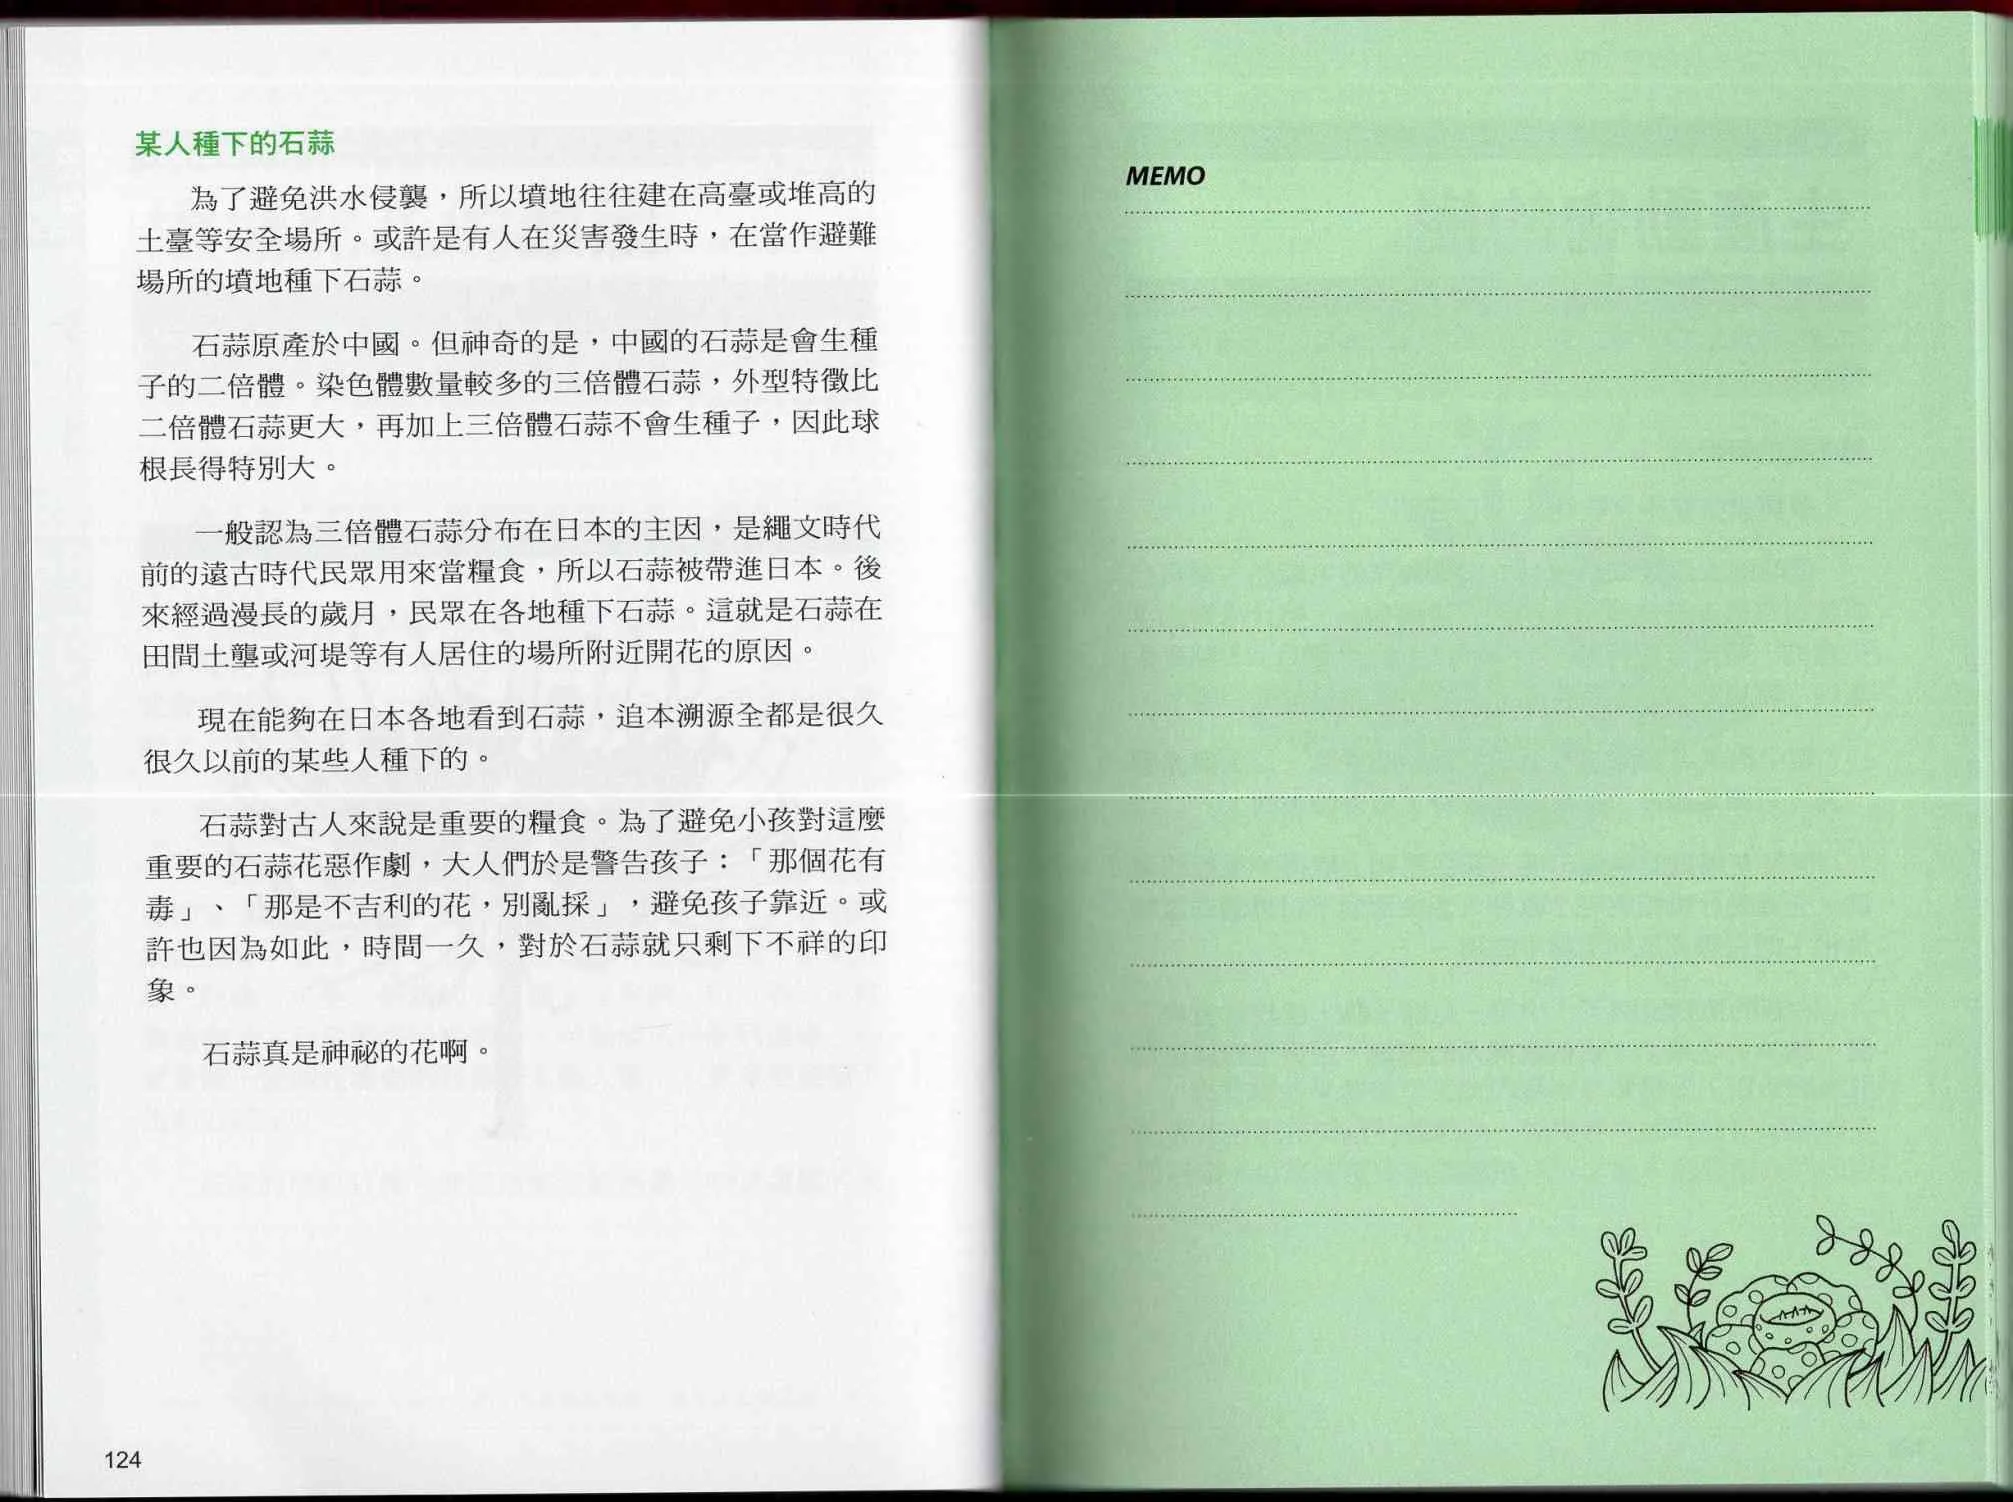 某人種下的石蒜
為了避免洪水侵襲，所以墳地往往建在高臺或堆高的
土臺等安全場所。或許是有人在災害發生時，在當作避難
場所的墳地種下石蒜。
石蒜原產於中國。但神奇的是，中國的石蒜是會生種
子的二倍體。染色體數量較多的三倍體石蒜，外型特徵比
二倍體石蒜更大，再加上三倍體石蒜不會生種子，因此球
根長得特別大。
一般認為三倍體石蒜分布在日本的主因，是繩文時代
前的遠古時代民眾用來當糧食，所以石蒜被帶進日本。後
來經過漫長的歲月，民眾在各地種下石蒜。這就是石蒜在
田間土壟或河堤等有人居住的場所附近開花的原因。
現在能夠在日本各地看到石蒜，追本溯源全都是很久
很久以前的某些人種下的。
石蒜對古人來說是重要的糧食。為了避免小孩對這麼
重要的石蒜花惡作劇，大人們於是警告孩子：「那個花有
毒」、「那是不吉利的花，別亂採」，避免孩子靠近。或
許也因為如此，時間一久，對於石蒜就只剩下不祥的印
象。
石蒜真是神祕的花啊。
124
MEMO